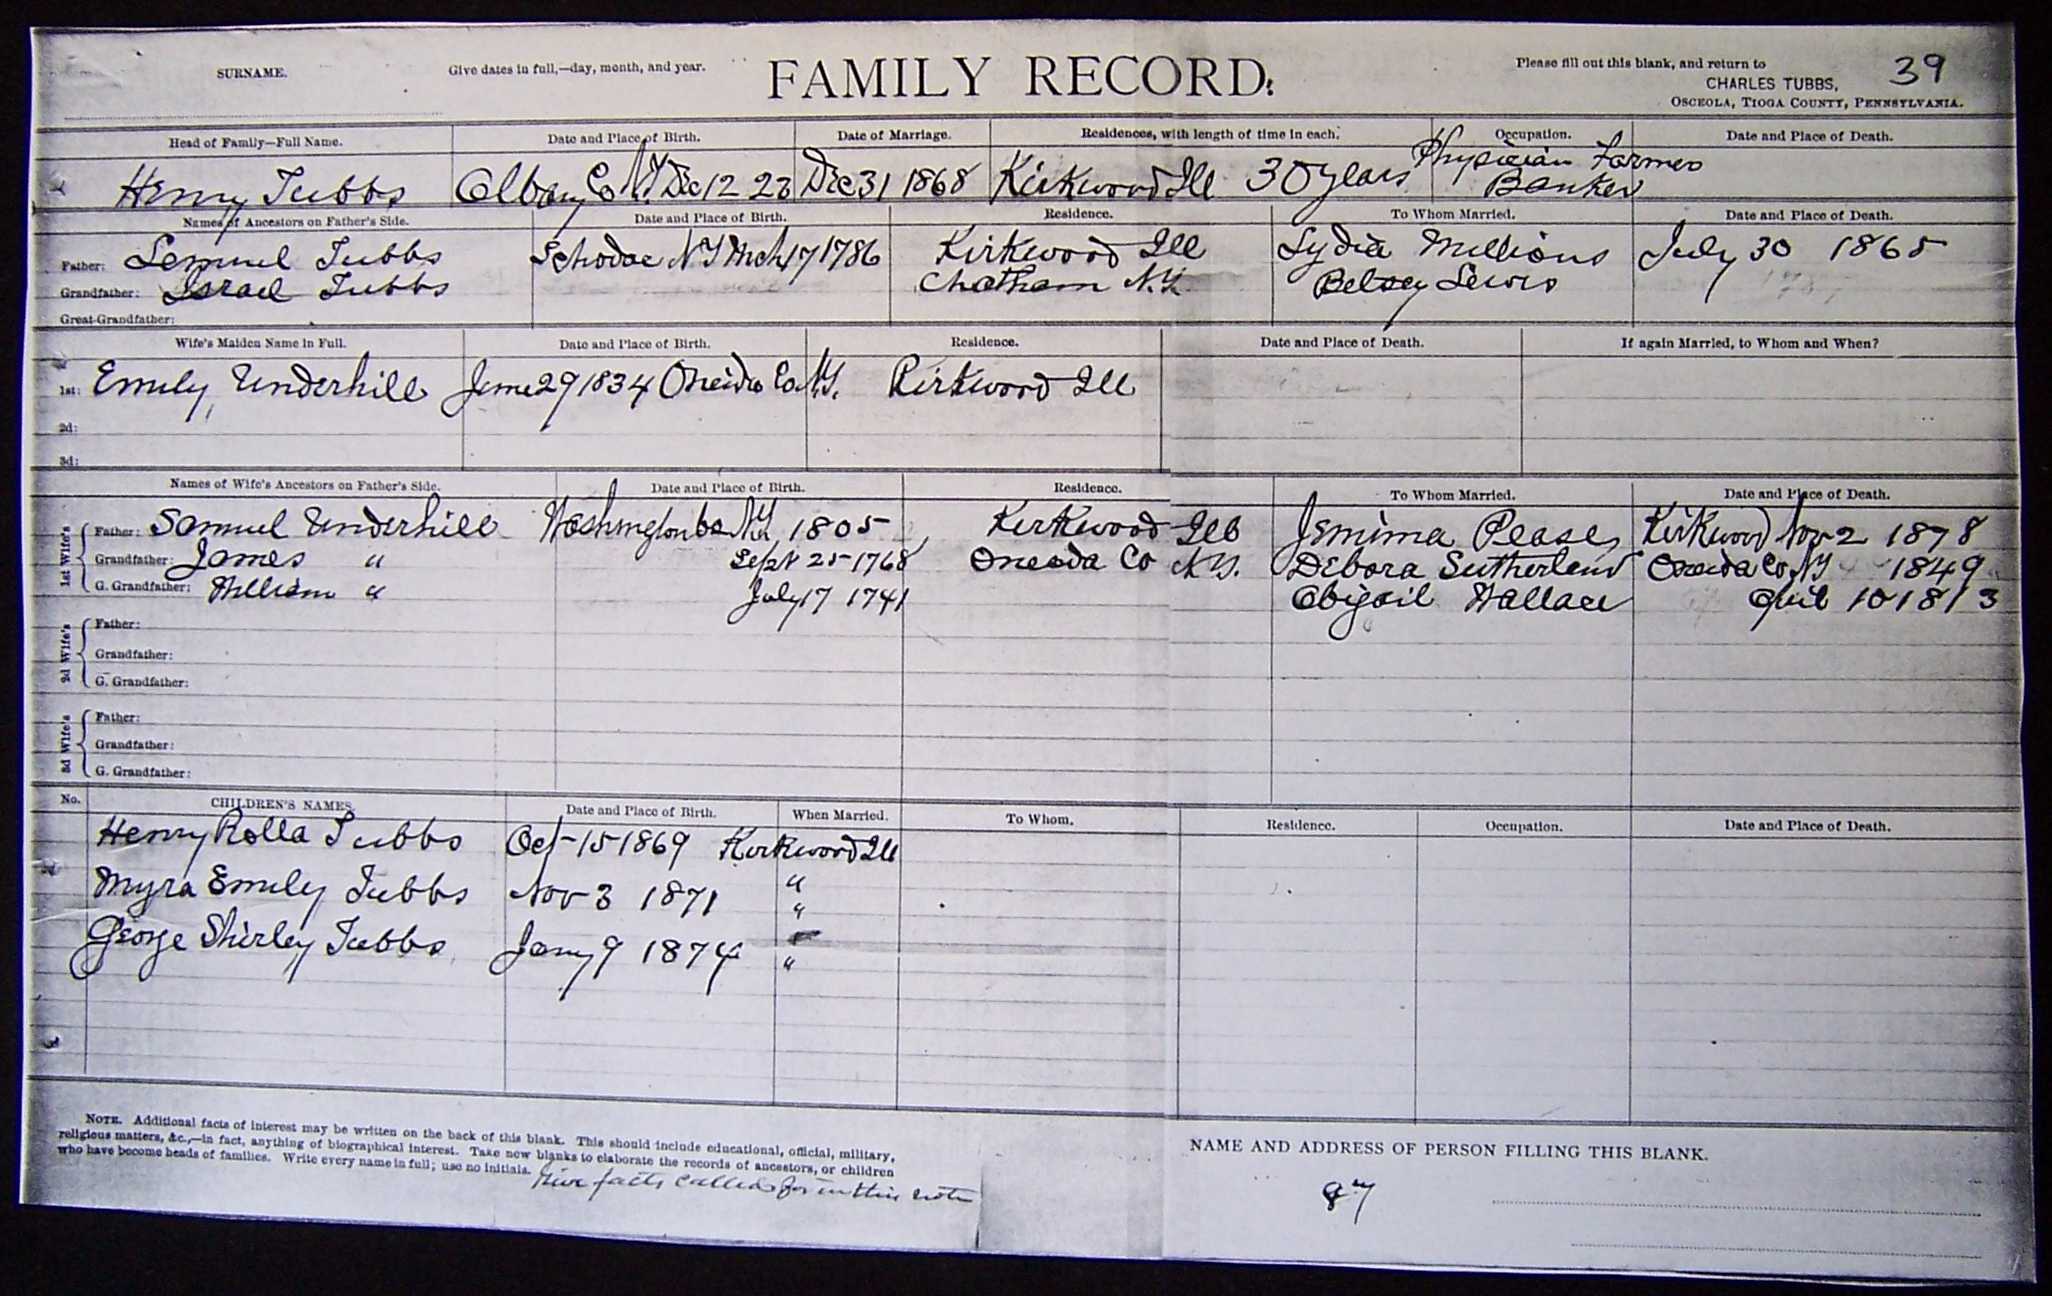 SURNAME. Give dates in full,—day, month, and year. FAMILY RECORD. Please fill out this blank, and return to 39
CHARLES TUBBS,
OSCEOLA, TIOGA COUNTY, PENNSYLVANIA.
Head of Family—Full Name. Date and Place of Birth. Date of Marriage. Residences, with length of time in each. Occupation. Date and Place of Death.
Henry Tubbs Albany Co N.Y. Dec 12 22 Dec 31 1868 Kirkwood Ill 30 years Physician Farmer
Banker
Names of Ancestors on Father's Side. Date and Place of Birth. Residence. To Whom Married. Date and Place of Death.
Father: Lemuel Tubbs Schodac NY Mch 17 1786 Kirkwood Ill Lydia Millions July 30 1865
Grandfather: Israel Tubbs Chatham N.Y. Betsey Lewis
Great-Grandfather:
Wife's Maiden Name in Full. Date and Place of Birth. Residence. Date and Place of Death. If again Married, to Whom and When?
1st: Emily Underhill June 29 1834 Oneida Co. N.Y. Kirkwood Ill
2d:
3d:
Names of Wife's Ancestors on Father's Side. Date and Place of Birth. Residence. To Whom Married. Date and Place of Death.
1st Wife's
Father: Samuel Underhill Washington Co N.Y. 1805 Kirkwood Ill Jemima Pease Kirkwood Nov 2 1878
Grandfather: James " Sept 25 1768 Oneida Co N.Y. Debora Sutherland Oneida Co NY 1849
G. Grandfather: William " July 17 1741 Abigail Wallace April 10 1813
2d Wife's
Father:
Grandfather:
G. Grandfather:
3d Wife's
Father:
Grandfather:
G. Grandfather:
No. CHILDREN'S NAMES. Date and Place of Birth. When Married. To Whom. Residence. Occupation. Date and Place of Death.
Henry Rolla Tubbs Oct 15 1869 Kirkwood Ill
Myra Emily Tubbs Nov 3 1871 "
"
George Shirley Tubbs Jany 9 1874 "
NOTE. Additional facts of interest may be written on the back of this blank. This should include educational, official, military,
religious matters, &c.,—in fact, anything of biographical interest. Take new blanks to elaborate the records of ancestors, or children
who have become heads of families. Write every name in full; use no initials. Give facts called for in this note
NAME AND ADDRESS OF PERSON FILLING THIS BLANK.